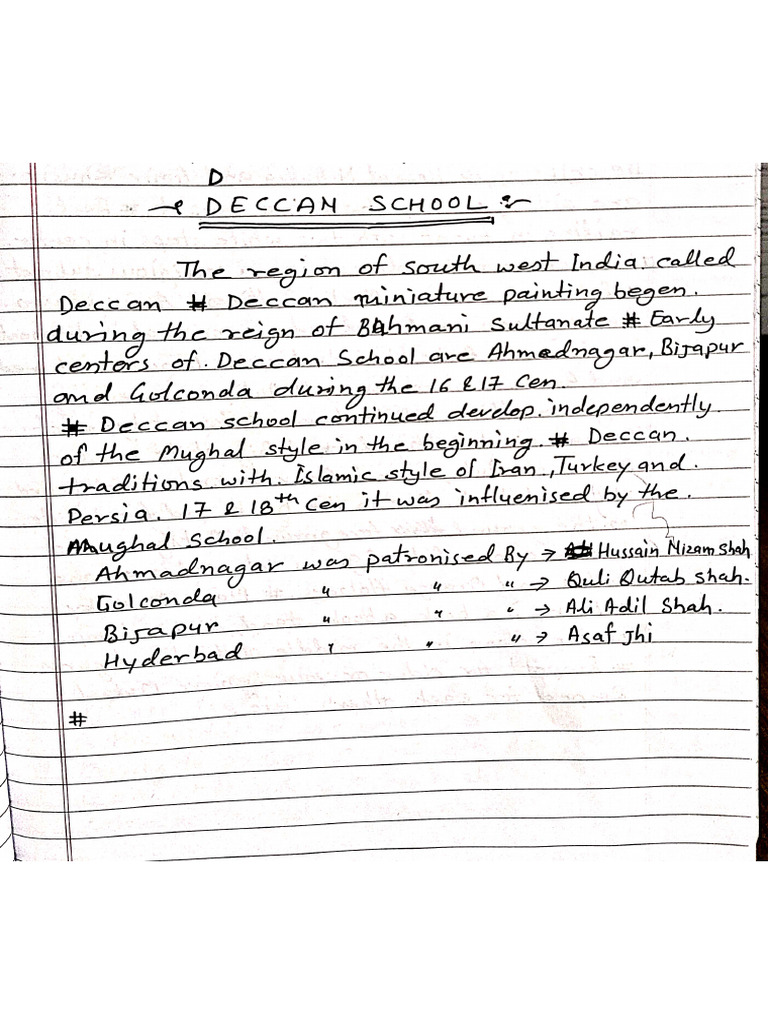 D
DECCAN SCHOOL :-
The region of south west India. called
Deccan # Deccan miniature painting begen.
during the reign of BAhmani Sultanate # Early
centers of. Deccan School are Ahmednagar, Bijapur
and Golconda during the 16 & 17 Cen.
# Deccan school continued develop. independently
of the Mughal style in the beginning. # Deccan.
traditions with. Islamic style of Iran, Turkey and.
Persia. 17 & 18th Cen it was influenised by the.
Mughal School.
Ahmadnagar was patronised By → Hussain Nizam Shah
Golconda " " " → Quli Qutab Shah.
Bijapur " " " → Ali Adil Shah.
Hyderbad " " " → Asaf Jhi
#